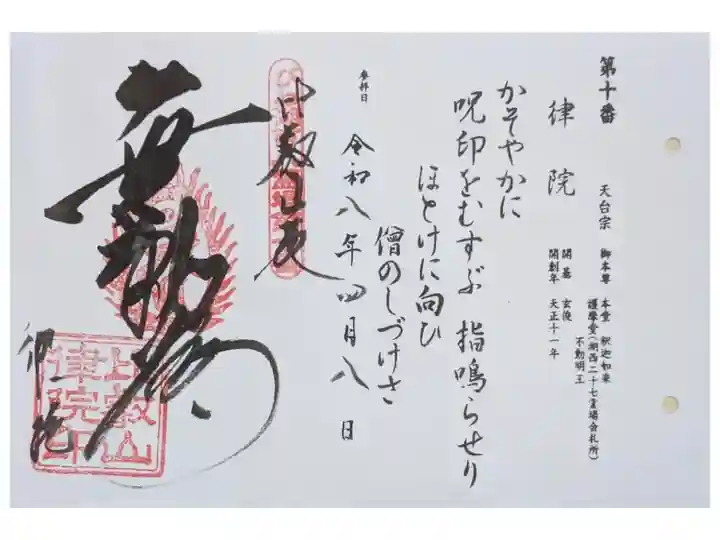 第十番
律院
天台宗
御本尊 本堂 釈迦如来
護摩堂(湖西二十七霊場会札所)
不動明王
開基 玄俊
開創年 天正十一年
かそやかに
呪印をむすぶ 指鳴らせり
ほとけに向ひ
僧のしづけさ
参拝日 令和八年四月八日
比叡山麓
無動尊
律院
比叡山
律院印